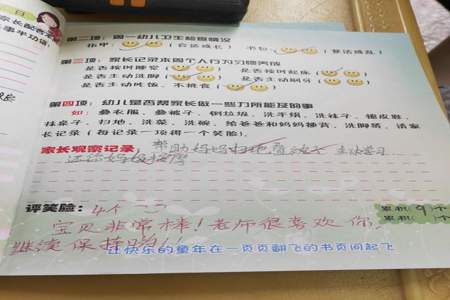 家长配合
事半功倍
第二项：周一幼儿卫生检查情况
指甲（ ）（合适或长） 书包（ ）（整洁或乱）
第三项：家长记录本周个人行为习惯养成
是否按时睡觉（ ） 是否按时起床（ ）
是否主动洗脚（ ） 是否主动刷牙（ ）
是否主动吃饭、不挑食（ ）
第四项：幼儿是否帮家长做一些力所能及的事
如：叠衣服、叠被子、倒垃圾、洗手绢、洗袜子、擦皮鞋、
抹桌子、扫地、洗菜、洗碗、给爸爸和妈妈捶背、洗脚等，请家
长记录（每记录一项得一个笑脸）。
家长观察记录：帮助妈妈扫地 主动学习
还给妈妈
评笑脸：4个 累积：9个
宝贝非常棒！老师很喜欢你， 累积：个
继续保持哟！
让快乐的童年在一页页翻飞的书页间起飞